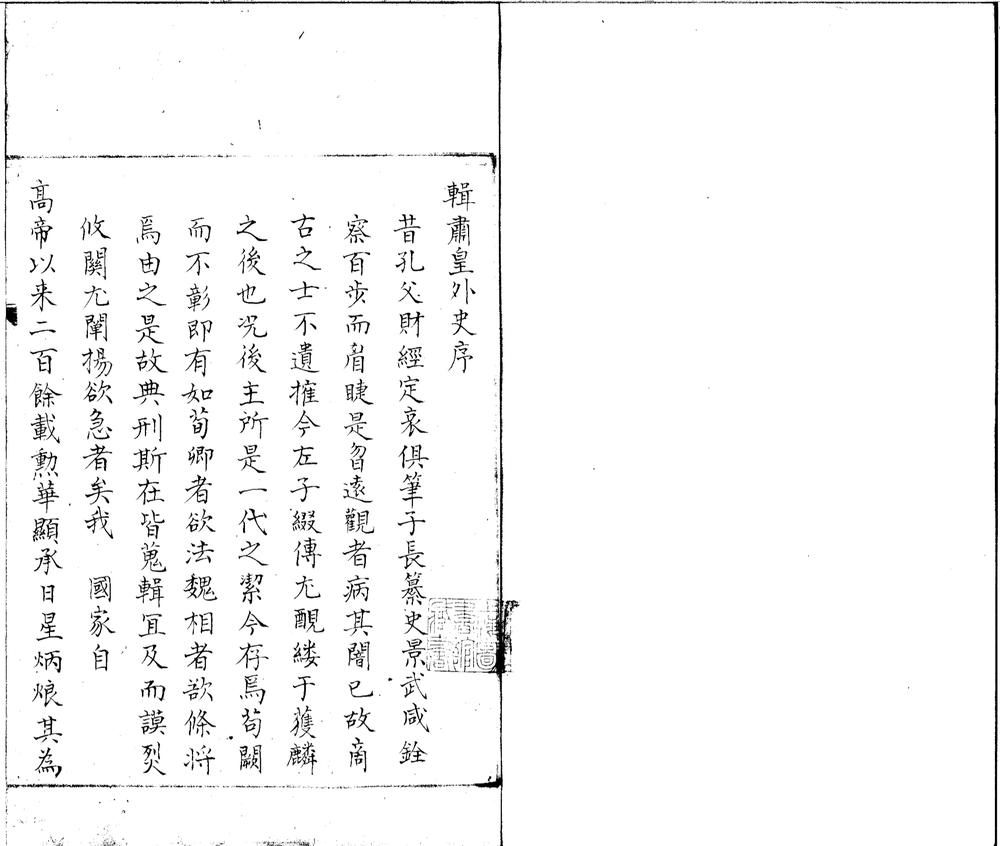 輯肅皇外史序
昔孔父財經定哀俱筆子長纂史景武咸銓
察百步而眉睫是曶遠觀者病其闇已故商
古之士不遺搉今左子綴傳尤覼縷于獲麟
之後也况後主所是一代之絜令存焉苟闕
而不彰即有如荀卿者欲法魏相者欲條将
焉由之是故典刑斯在皆蒐輯冝及而謨烈
攸關尤闡揚欲急者矣我　國家自
髙帝以来二百餘載勲華顯承日星炳烺其為